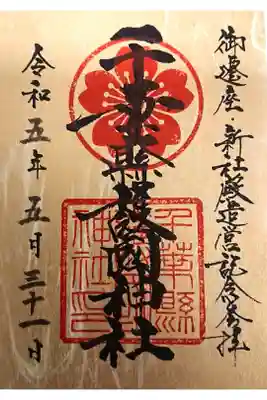 御遷座・新社殿造営記念参拝
千葉縣護國神社
令和五年五月三十一日
千葉縣
神社印